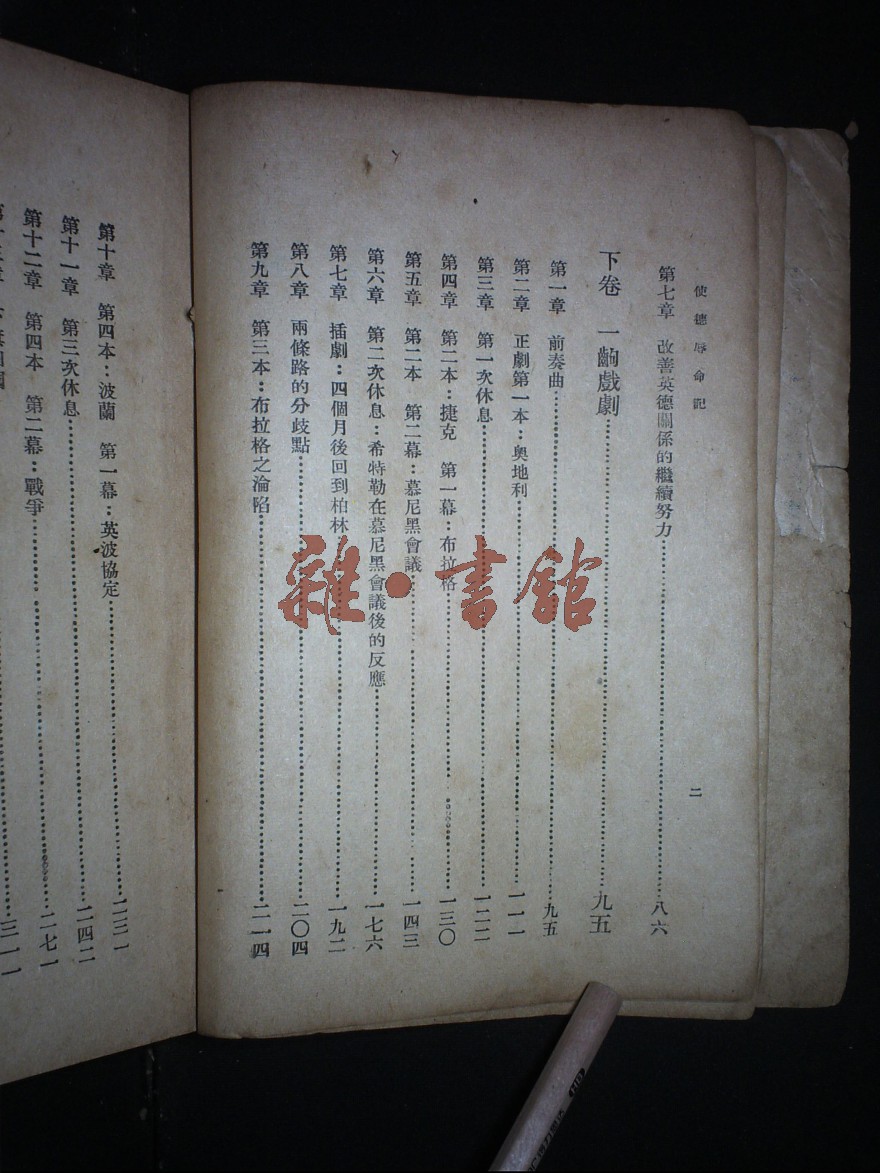 使德辱命記
二
第七章 改善英德關係的繼續努力……八六
下卷 一齣戲劇……九五
第一章 前奏曲……九五
第二章 正劇第一本：奧地利……一一一
第三章 第一次休息……一二二
第四章 第二本：捷克 第一幕：布拉格……一三〇
第五章 第二本 第二幕：慕尼黑會議……一四三
第六章 第二次休息：希特勒在慕尼黑會議後的反應……一七六
第七章 插劇：四個月後回到柏林……一九二
第八章 兩條路的分歧點……二〇四
第九章 第三本：布拉格之淪陷……二一四
第十章 第四本：波蘭 第一幕：英波協定……二三一
第十一章 第三次休息……二四二
第十二章 第四本 第二幕：戰爭……二七一
三一一
雜·書館